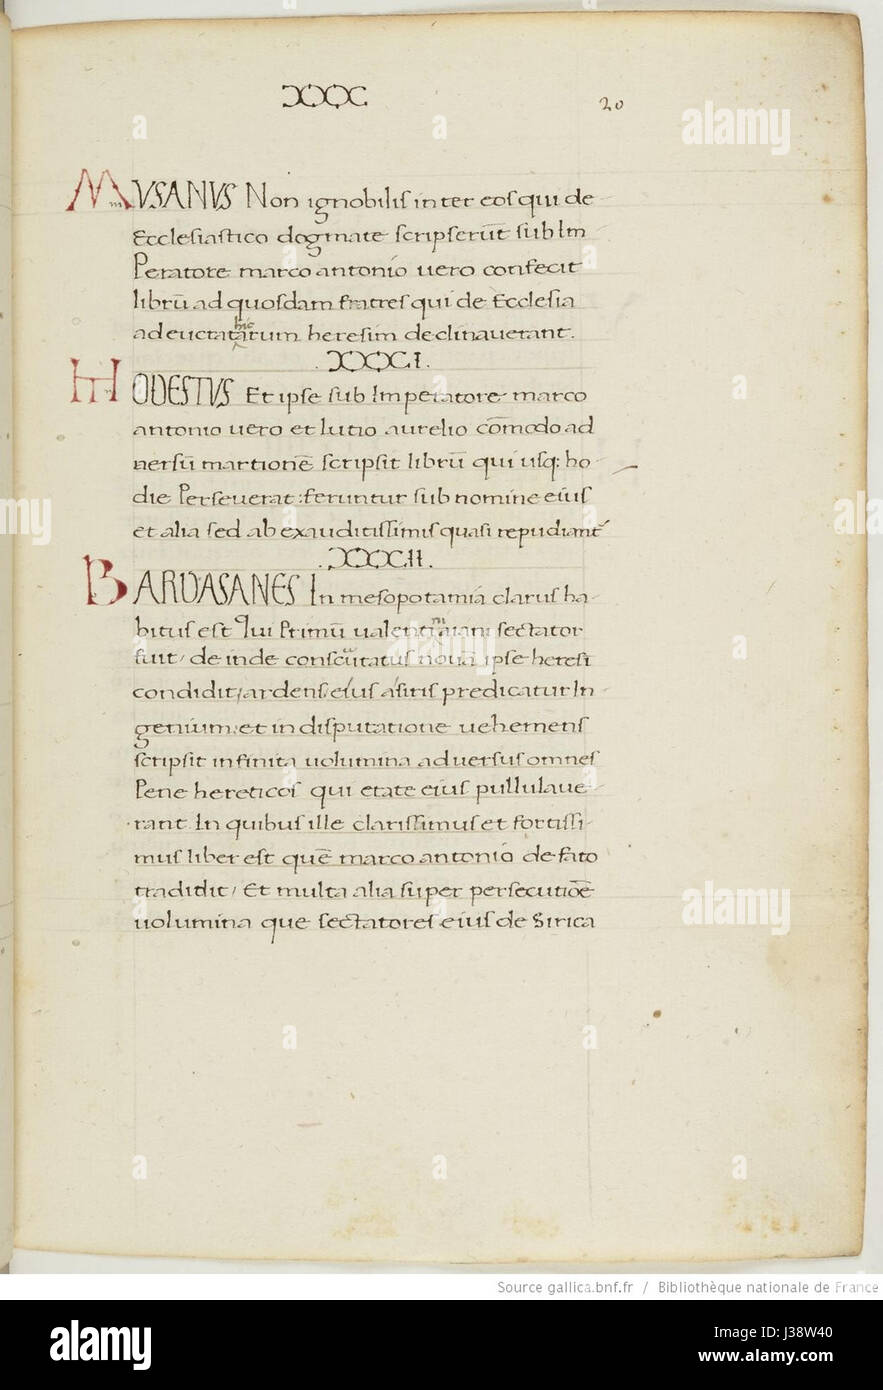 XXXC
20
MVSANVS Non ignobilis inter eos qui de
Ecclesiastico dogmate scripserūt sub Im
Peratore marco antonio uero confecit
librū ad quosdam fratres qui de Ecclesia
ad euctatarum heresim declinauerant.
.XXXCI.
MODESTVS Et ipse sub Imperatore marco
antonio uero et lutio aurelio cōmodo ad
uersū martionē scripsit librū qui usq: ho
die Perseuerat: feruntur sub nomine eius
et alia sed ab exauditissimis quasi repudiant
.XXXCII.
BARDASANES In mesopotamia clarus ha
bitus est Qui Primū ualentiniani sectator
fuit / de inde confutatus nouā ipse heresi
condidit / ardens eius asiris predicatur In
genium: et in disputatione uehemens
scripsit infinita uolumina aduersus omnes
Pene hereticos qui etate eius pullulaue
rant In quibus ille clarissimus et fortissi
mus liber est quē marco antonio de fato
tradidit / Et multa alia super persecutiōe
uolumina que sectatores eius de Sirica
Source gallica.bnf.fr / Bibliothèque nationale de France
alamy
Image ID: J38W40
www.alamy.com